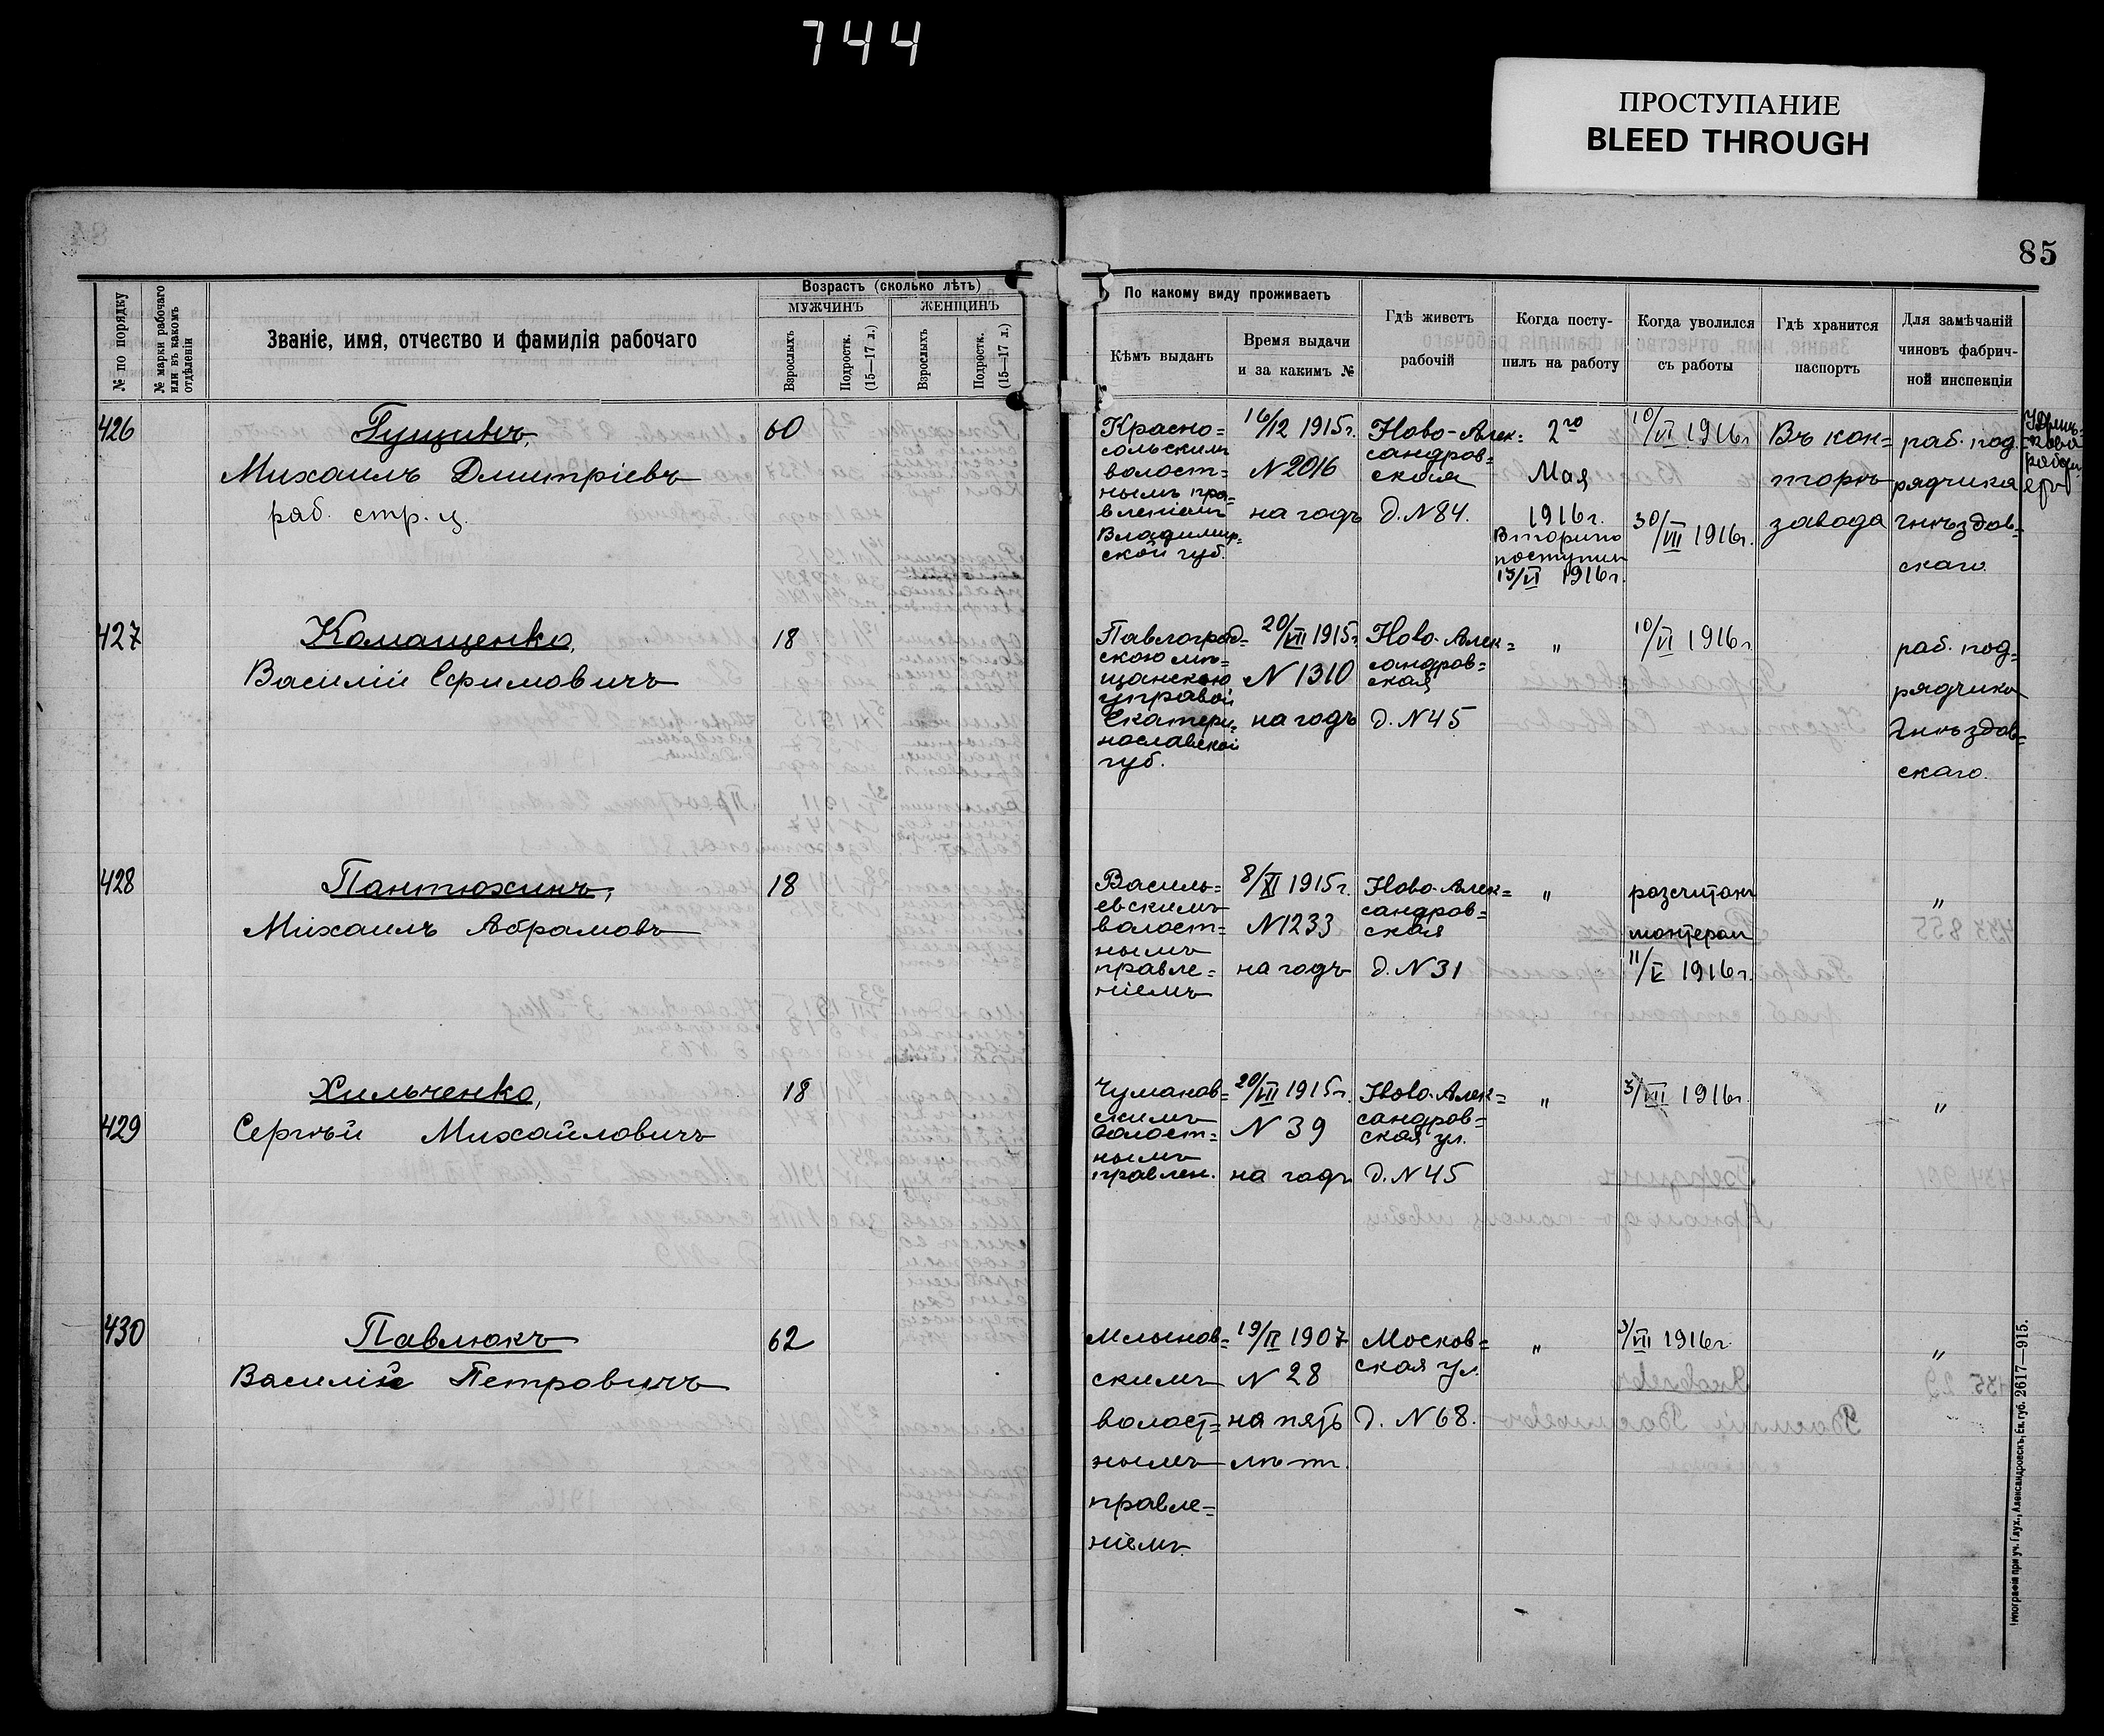 744
ПРОСТУПАНИЕ
BLEED THROUGH
85
№ по порядку
№ марки рабочаго или въ какомъ отдѣленіи
Званіе, имя, отчество и фамилія рабочаго
Возрастъ (сколько лѣтъ)
МУЖЧИНЪ
ЖЕНЩИНЪ
Взрослыхъ
Подростк. (15—17 л.)
Взрослыхъ
Подростк. (15—17 л.)
По какому виду проживаетъ
Кѣмъ выданъ
Время выдачи
и за какимъ №
Гдѣ живетъ
рабочій
Когда посту-
пилъ на работу
Когда уволился
съ работы
Гдѣ хранится
паспортъ
Для замѣчаній
чиновъ фабрич-
ной инспекціи
426
Гущинъ,
Михаилъ Дмитріевъ
раб. стр. ц.
60
Красно=
сольскимъ
волост=
нымъ пра=
вленіемъ
Владимир=
ской губ.
16/12 1915г.
N 2016
на годъ
Ново-Алек=
сандров=
ская
д. N 84.
2го
Мая
1916г.
Вторично
поступил
13/VI 1916г.
10/VI 1916г
30/VII 1916г.
Въ кон=
торѣ
завода
раб. под=
рядчика
Гнѣздов=
скаго.
427
Комащенко,
Василій Ефимовичъ
18
Павлоград=
скою мѣ=
щанскою
управой
Екатери=
нославской
губ.
20/VII 1915г
N 1310
на годъ
Ново-Алек=
сандров=
ская
д. N 45
"
10/VI 1916г
раб. под=
рядчика
Гнѣздов=
скаго.
428
Пантюхинъ,
Михаилъ Абрамовъ
18
Василь=
евскимъ
волост=
нымъ
правле=
ніемъ
8/XI 1915г.
N 1233
на годъ
Ново-Алек=
сандров=
ская
д. N 31
"
розсчитанъ
монтером
11/V 1916г.
"
429
Хильченко,
Сергѣй Михайловичъ
18
Чумаков=
скимъ
волост=
нымъ
правлен.
20/VII 1915г.
N 39
на годъ
Ново-Алек=
сандров=
ская ул.
д. N 45
"
3/VII 1916г.
"
430
Павлюкъ
Василій Петровичъ
62
Млынов=
скимъ
волост=
нымъ
правле=
ніемъ.
19/II 1907
N 28
на пять
лѣт.
Москов=
ская ул.
д. N 68.
"
3/VII 1916г.
"
Типографія при уч. Глух., Александровскъ, Ек. губ. 2617—915.